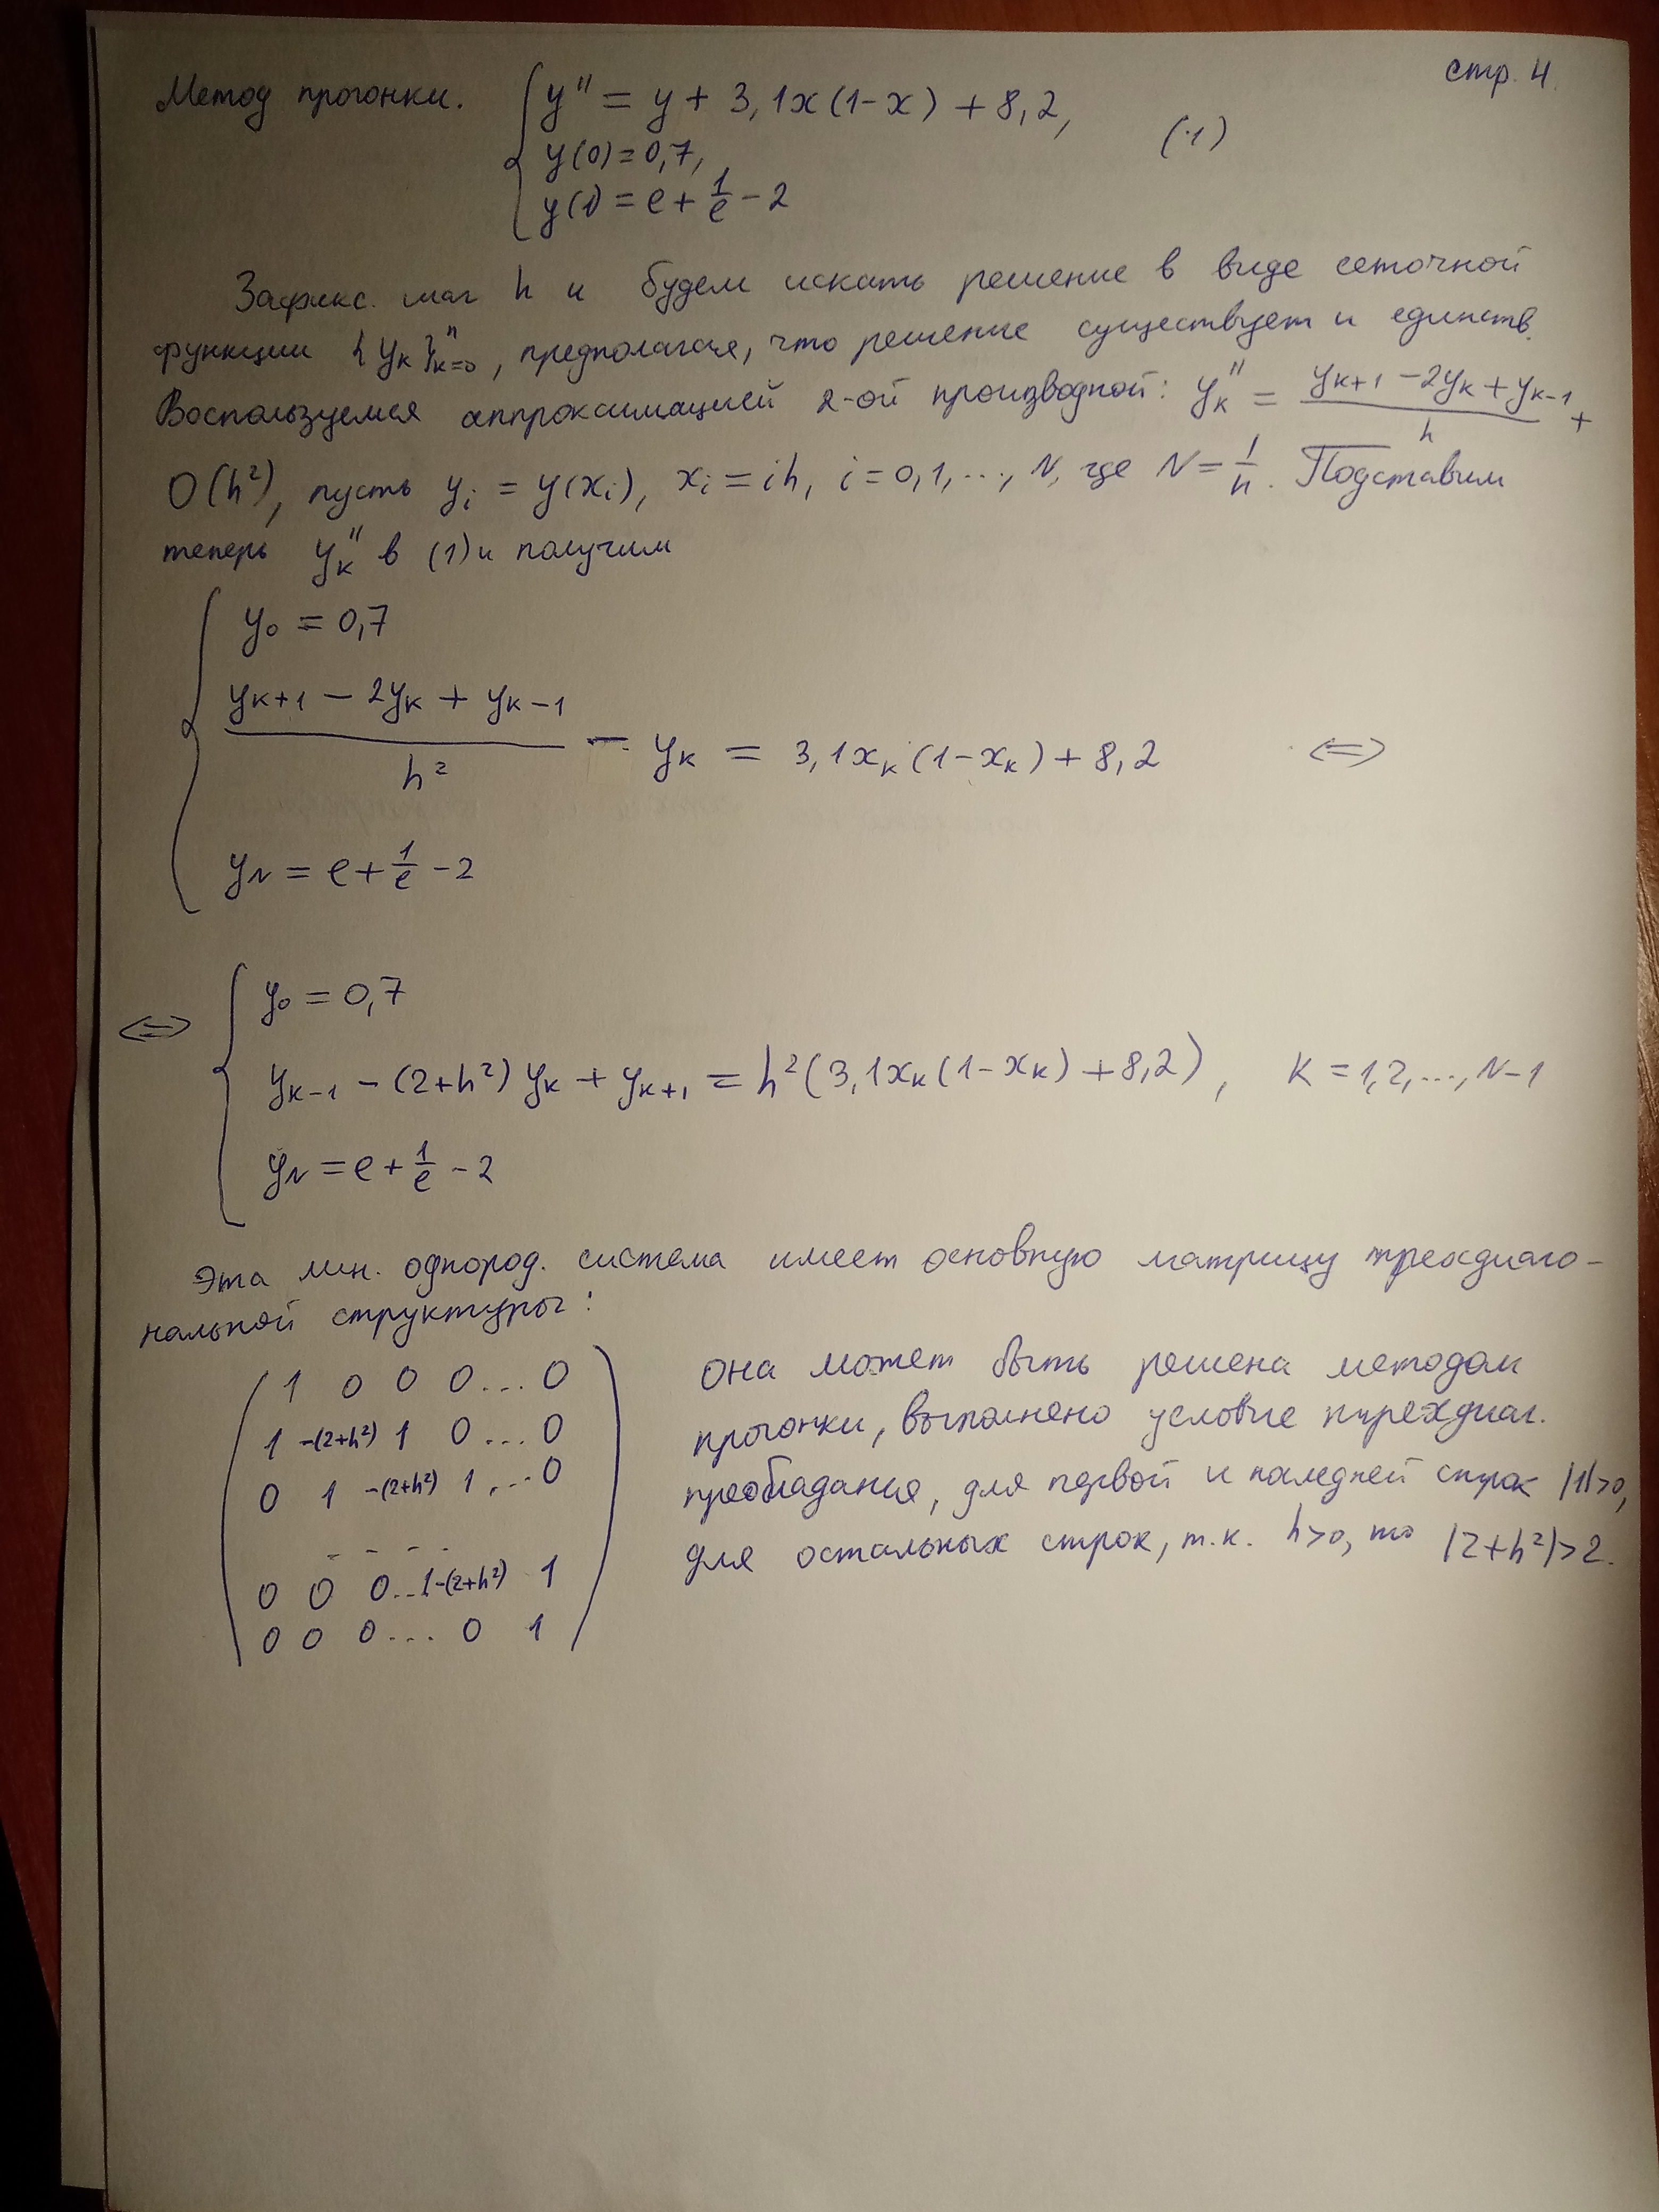 стр. 4.
Метод прогонки. { y'' = y + 3,1x(1-x) + 8,2,
y(0) = 0,7, (1)
y(1) = e + 1/e - 2
Зафикс. шаг h и будем искать решение в виде сеточной
функции {y_k}^n_{k=0}, предполагая, что решение существует и единств.
Воспользуемся аппроксимацией 2-ой производной: y_k'' = (y_{k+1} - 2y_k + y_{k-1})/h +
O(h²), пусть y_i = y(x_i), x_i = ih, i = 0,1,..., N, где N = 1/h. Подставим
теперь y_k'' в (1) и получим
{ y_0 = 0,7
(y_{k+1} - 2y_k + y_{k-1})/h² - y_k = 3,1x_k(1-x_k) + 8,2 <=>
y_N = e + 1/e - 2
<=> { y_0 = 0,7
y_{k-1} - (2+h²) y_k + y_{k+1} = h²(3,1x_k(1-x_k) + 8,2), k = 1,2,..., N-1
y_N = e + 1/e - 2
Эта лин. однород. система имеет основную матрицу трехдиаго-
нальной структуры:
( 1 0 0 0 ... 0
1 -(2+h²) 1 0 ... 0
0 1 -(2+h²) 1 ... 0
- - - -
0 0 0 .. 1 -(2+h²) 1
0 0 0 ... 0 1 )
она может быть решена методом
прогонки, выполнено условие трехдиаг.
преобладания, для первой и последней строк |1|>0,
для остальных строк, т.к. h>0, то |2+h²|>2.